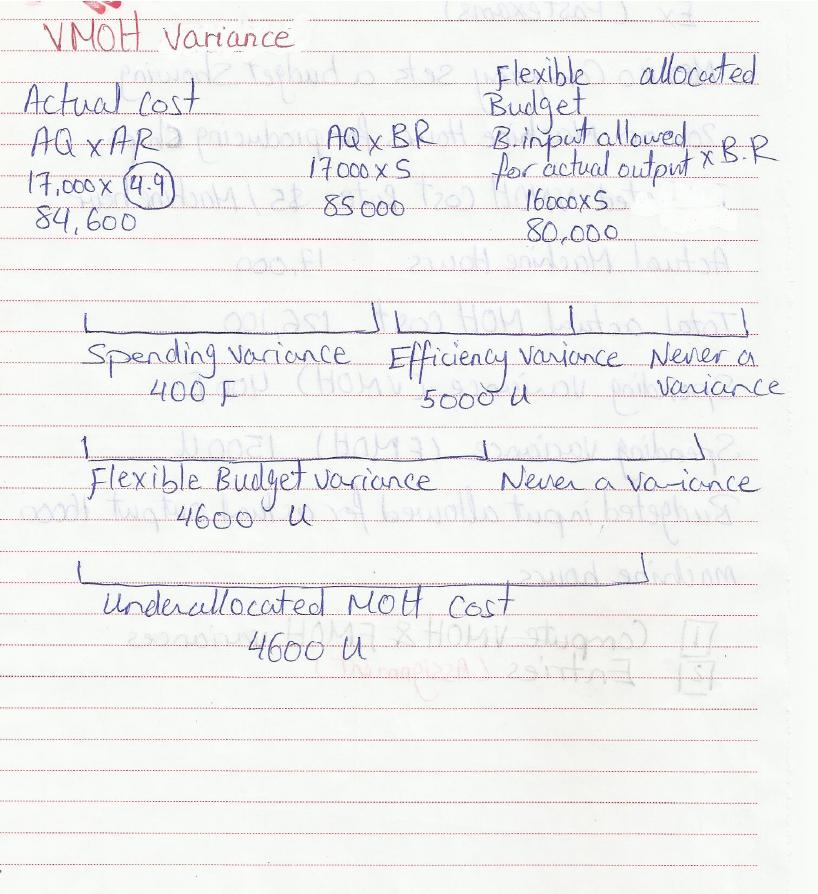 VMOH Variance
Actual Cost
AQ x AR
17,000 x 4.9
84,600
AQ x BR
17000 x 5
85000
Flexible allocated
Budget
B. input allowed
for actual output x B.R
16000x5
80,000
Spending variance Efficiency variance Never a
variance
400 F 5000 U
Flexible Budget variance Never a Variance
4600 U
Underallocated MOH Cost
4600 U